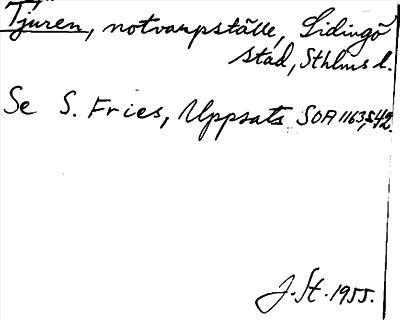 Tjuren, notvarpställe, Lidingö
stad, Sthlms l.
Se S. Fries, Uppsats SOA 1163, s 42.
J. St. 1955.